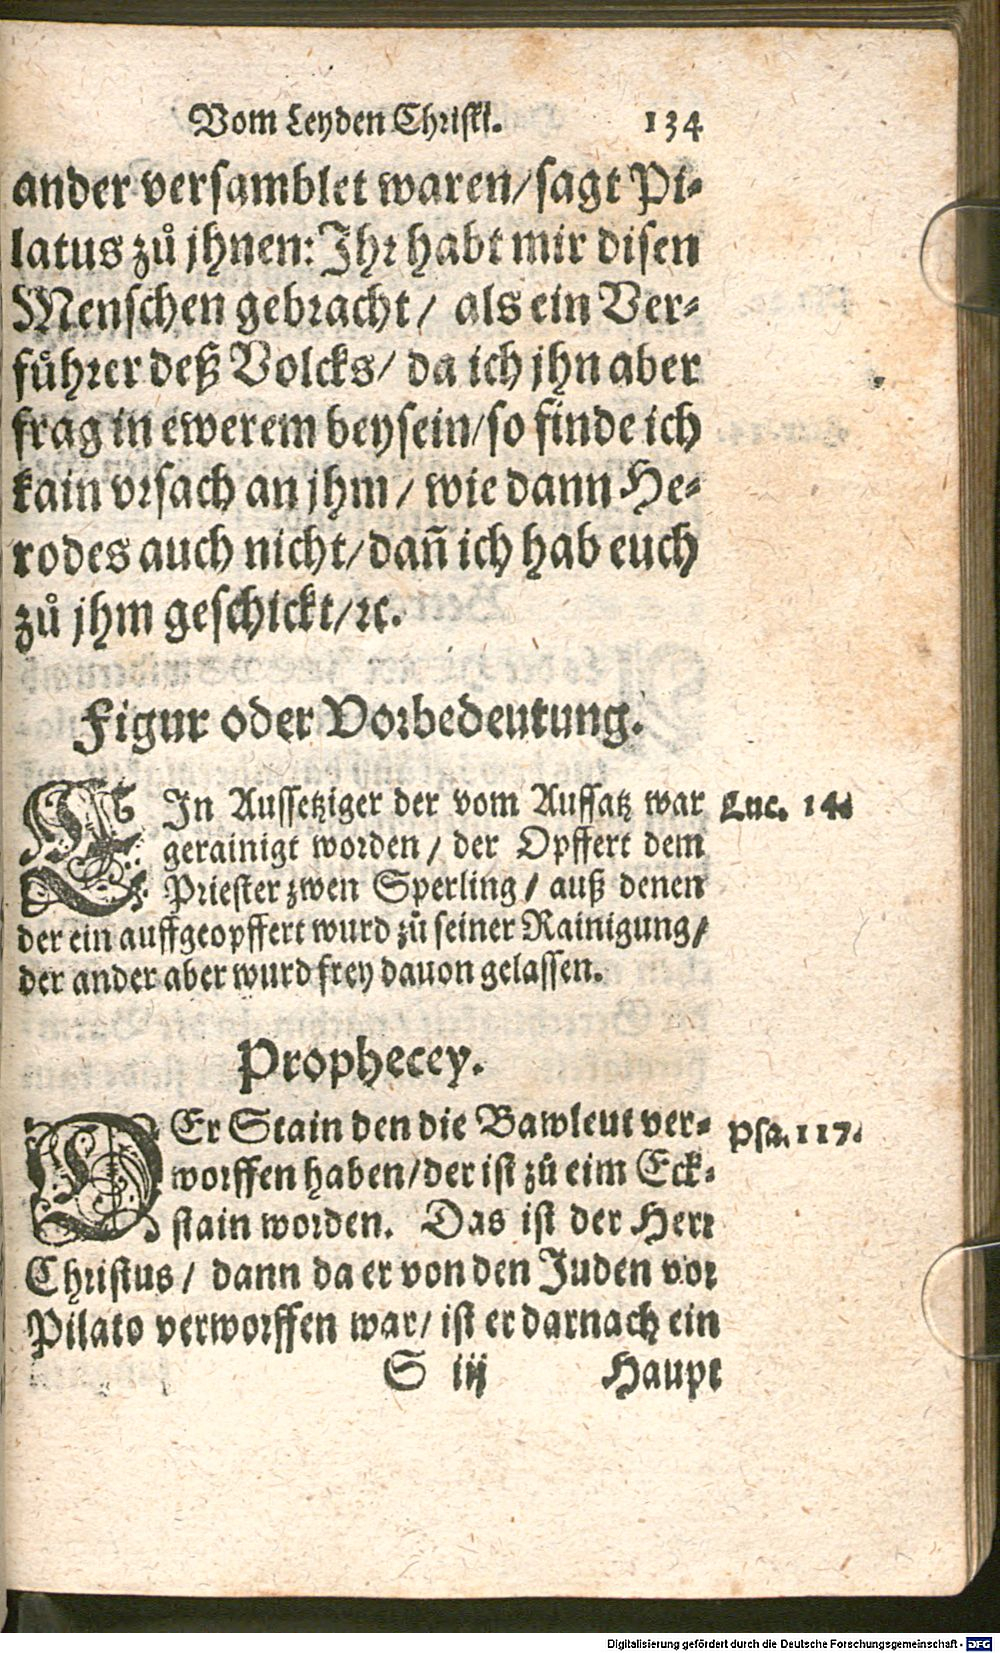 Vom Leyden Christi. 134
ander versamblet waren/sagt Pi-
latus zů jhnen: Ihr habt mir disen
Menschen gebracht/ als ein Ver-
fůhrer deß Volcks/ da ich jhn aber
frag in ewerem beysein/so finde ich
kain vrsach an jhm/ wie dann He-
rodes auch nicht/dañ ich hab euch
zů jhm geschickt/ꝛc.
Figur oder Vorbedeutung.
EIn Aussetziger der vom Aussatz war
gerainigt worden/ der Opffert dem
Priester zwen Sperling/ auß denen
der ein auffgeopffert wurd zů seiner Rainigung/
der ander aber wurd frey dauon gelassen.
Luc. 14.
Prophecey.
DEr Stain den die Bawleut ver-
worffen haben/der ist zů eim Eck-
stain worden. Das ist der Herr
Christus/ dann da er von den Juden vor
Pilato verworffen war/ ist er darnach ein
Psa. 117.
S iij Haupt
Digitalisierung gefördert durch die Deutsche Forschungsgemeinschaft - DFG